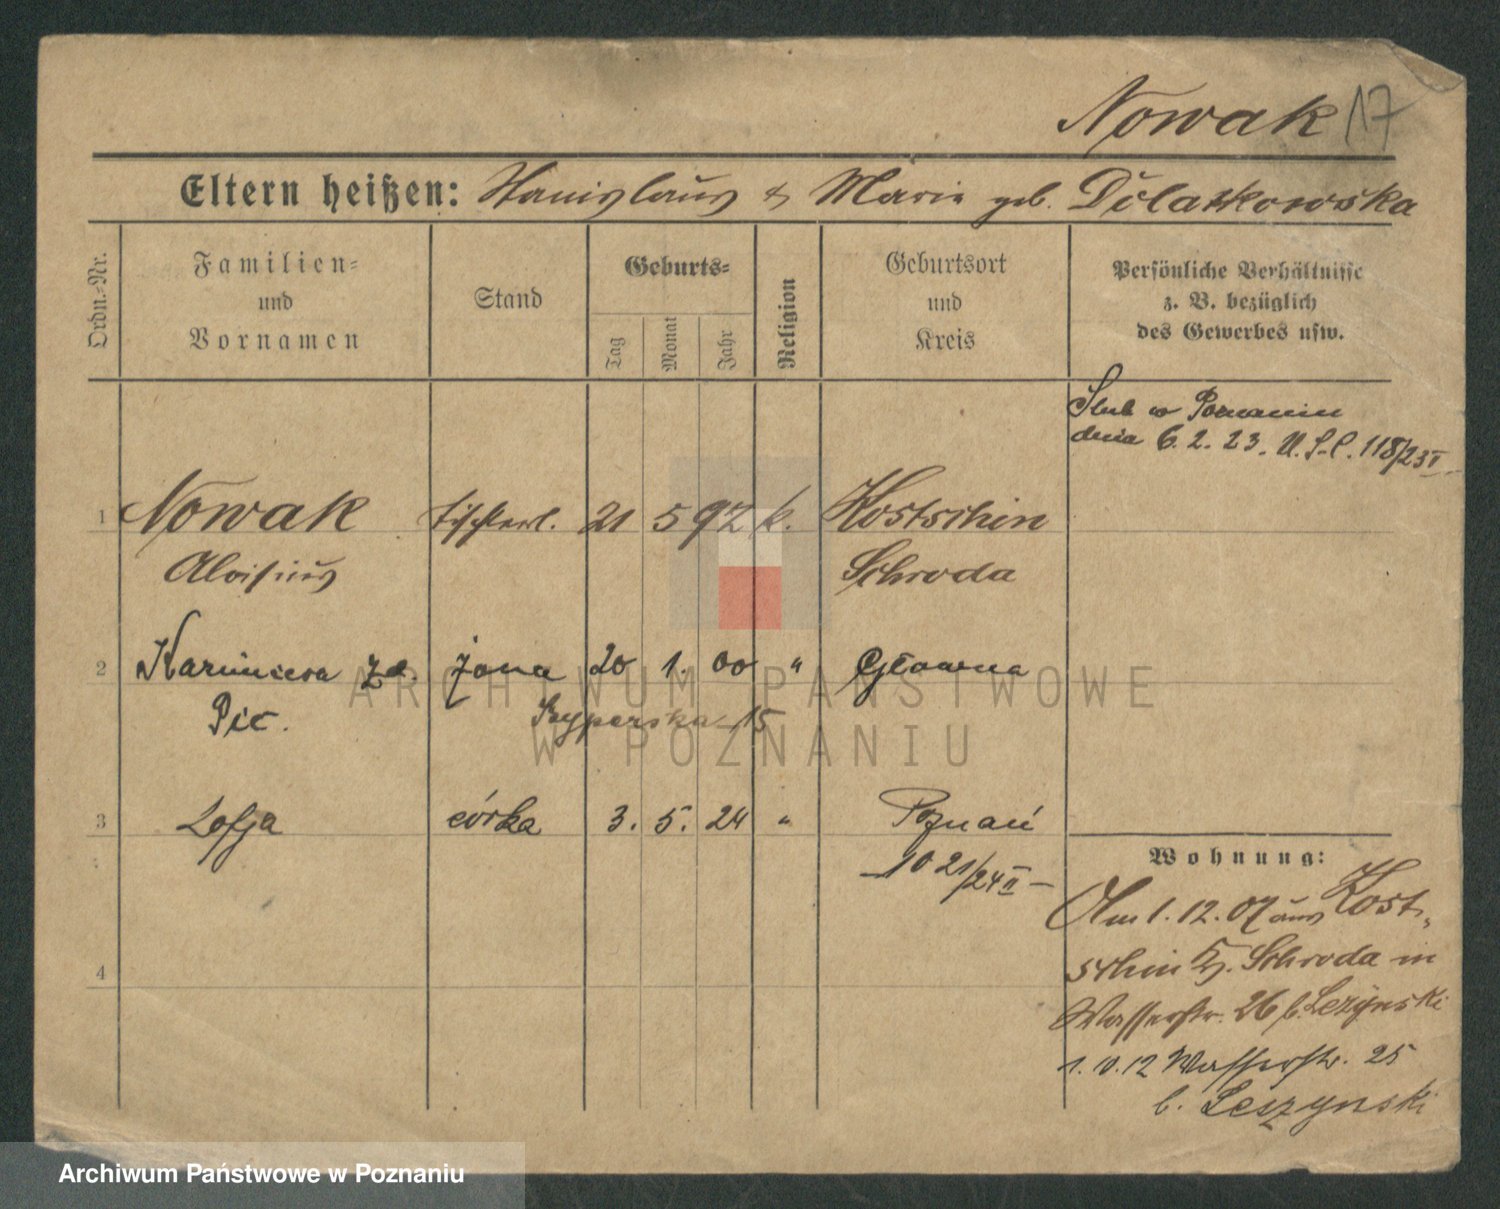 Nowak 17
Eltern heißen: Stanislaus & Marie geb. Dolatkowska
Ordn.-Nr.
Familien-
und
Vornamen
Stand
Geburts-
Tag
Monat
Jahr
Religion
Geburtsort
und
Kreis
Persönliche Verhältnisse
z. B. bezüglich
des Gewerbes usw.
Ślub w Poznaniu
dnia 6. 2. 23. U.S.C. 118/23 II
1 Nowak Tischlerl. 21 5 97 k. Kostschin
Aloisius Schroda
2 Kazimiera zd. żona 20 1. 00 " Główna
Pic. Szyperska 15
3 Zofja córka 3. 5. 24 " Poznań
1021/24 II
Wohnung:
Am 1. 12. 07 aus Kost-
schin Kr. Schroda in
Wasserstr. 26 b. Leżynski
1. 10. 12 Wasserstr. 25
b. Leszynski
4
ARCHIWUM PAŃSTWOWE
W POZNANIU
Archiwum Państwowe w Poznaniu